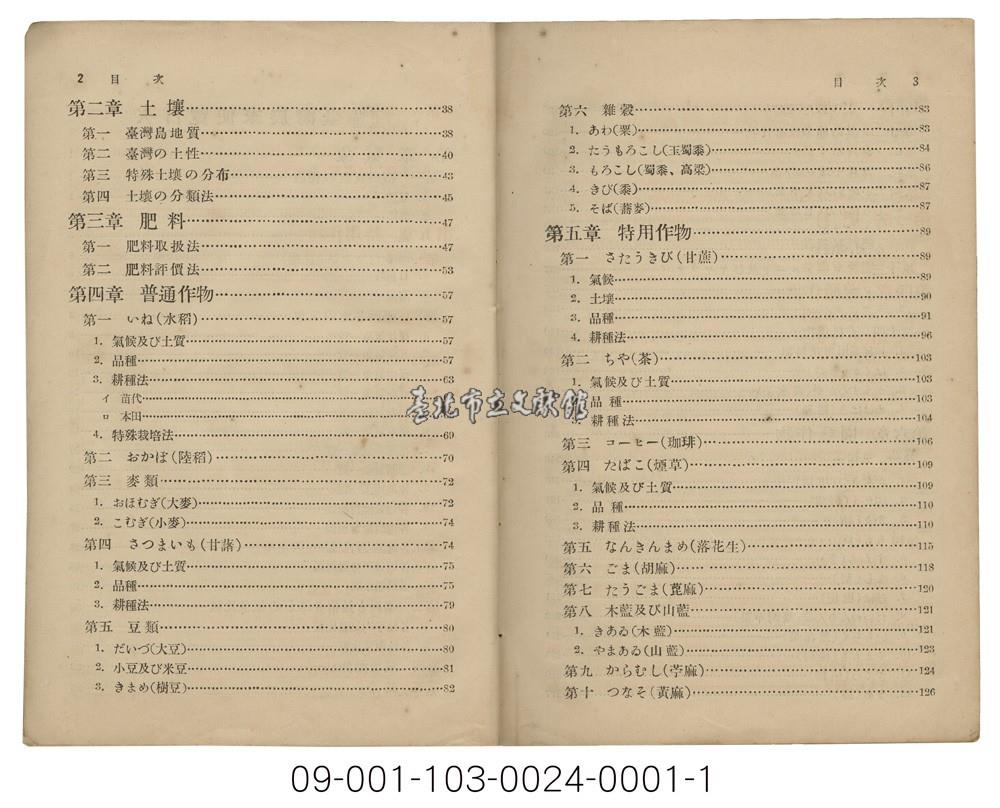 2 目 次
第二章 土壤 38
第一 臺灣島地質 38
第二 臺灣の土性 40
第三 特殊土壤の分布 43
第四 土壤の分類法 45
第三章 肥料 47
第一 肥料取扱法 47
第二 肥料評價法 53
第四章 普通作物 57
第一 いね(水稻) 57
1. 氣候及び土質 57
2. 品種 57
3. 耕種法 63
イ 苗代
ロ 本田
4. 特殊栽培法 69
第二 おかぼ(陸稻) 70
第三 麥類 72
1. おほむぎ(大麥) 72
2. こむぎ(小麥) 74
第四 さつまいも(甘藷) 74
1. 氣候及び土質 75
2. 品種 75
3. 耕種法 79
第五 豆類 80
1. だいづ(大豆) 80
2. 小豆及び米豆 81
3. きまめ(樹豆) 82
目 次 3
第六 雜穀 83
1. あわ(粟) 83
2. たうもろこし(玉蜀黍) 84
3. もろこし(蜀黍、高梁) 86
4. きび(黍) 87
5. そば(蕎麥) 87
第五章 特用作物 89
第一 さたうきび(甘蔗) 89
1. 氣候 89
2. 土壤 90
3. 品種 91
4. 耕種法 96
第二 ちや(茶) 103
1. 氣候及び土質 103
品種 103
耕種法 104
第三 コーヒー(珈琲) 106
第四 たばこ(煙草) 109
1. 氣候及び土質 109
2. 品種 110
3. 耕種法 110
第五 なんきんまめ(落花生) 115
第六 ごま(胡麻) 118
第七 たうごま(蓖麻) 120
第八 木藍及び山藍 121
1. きあゐ(木藍) 121
2. やまあゐ(山藍) 123
第九 からむし(苧麻) 124
第十 つなそ(黃麻) 126
臺北市立文獻館
09-001-103-0024-0001-1